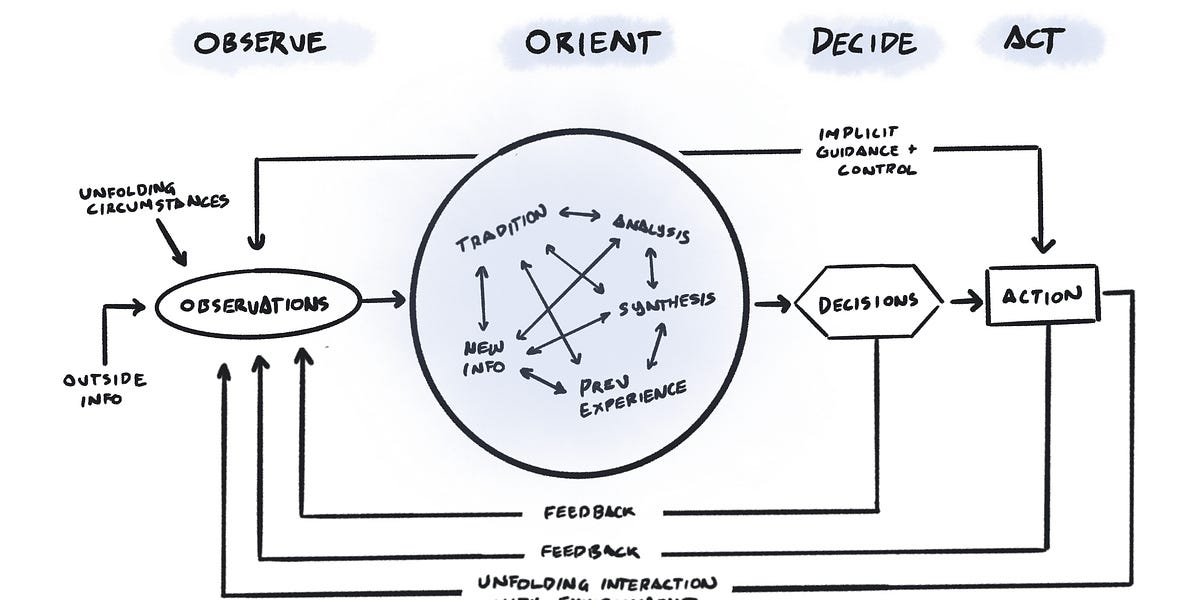 OBSERVE
ORIENT
DECIDE
ACT
IMPLICIT
GUIDANCE +
CONTROL
UNFOLDING
CIRCUMSTANCES
TRADITION
ANALYSIS
OBSERVATIONS
SYNTHESIS
DECISIONS
ACTION
NEW
INFO
OUTSIDE
INFO
PREV
EXPERIENCE
FEEDBACK
FEEDBACK
UNFOLDING INTERACTION